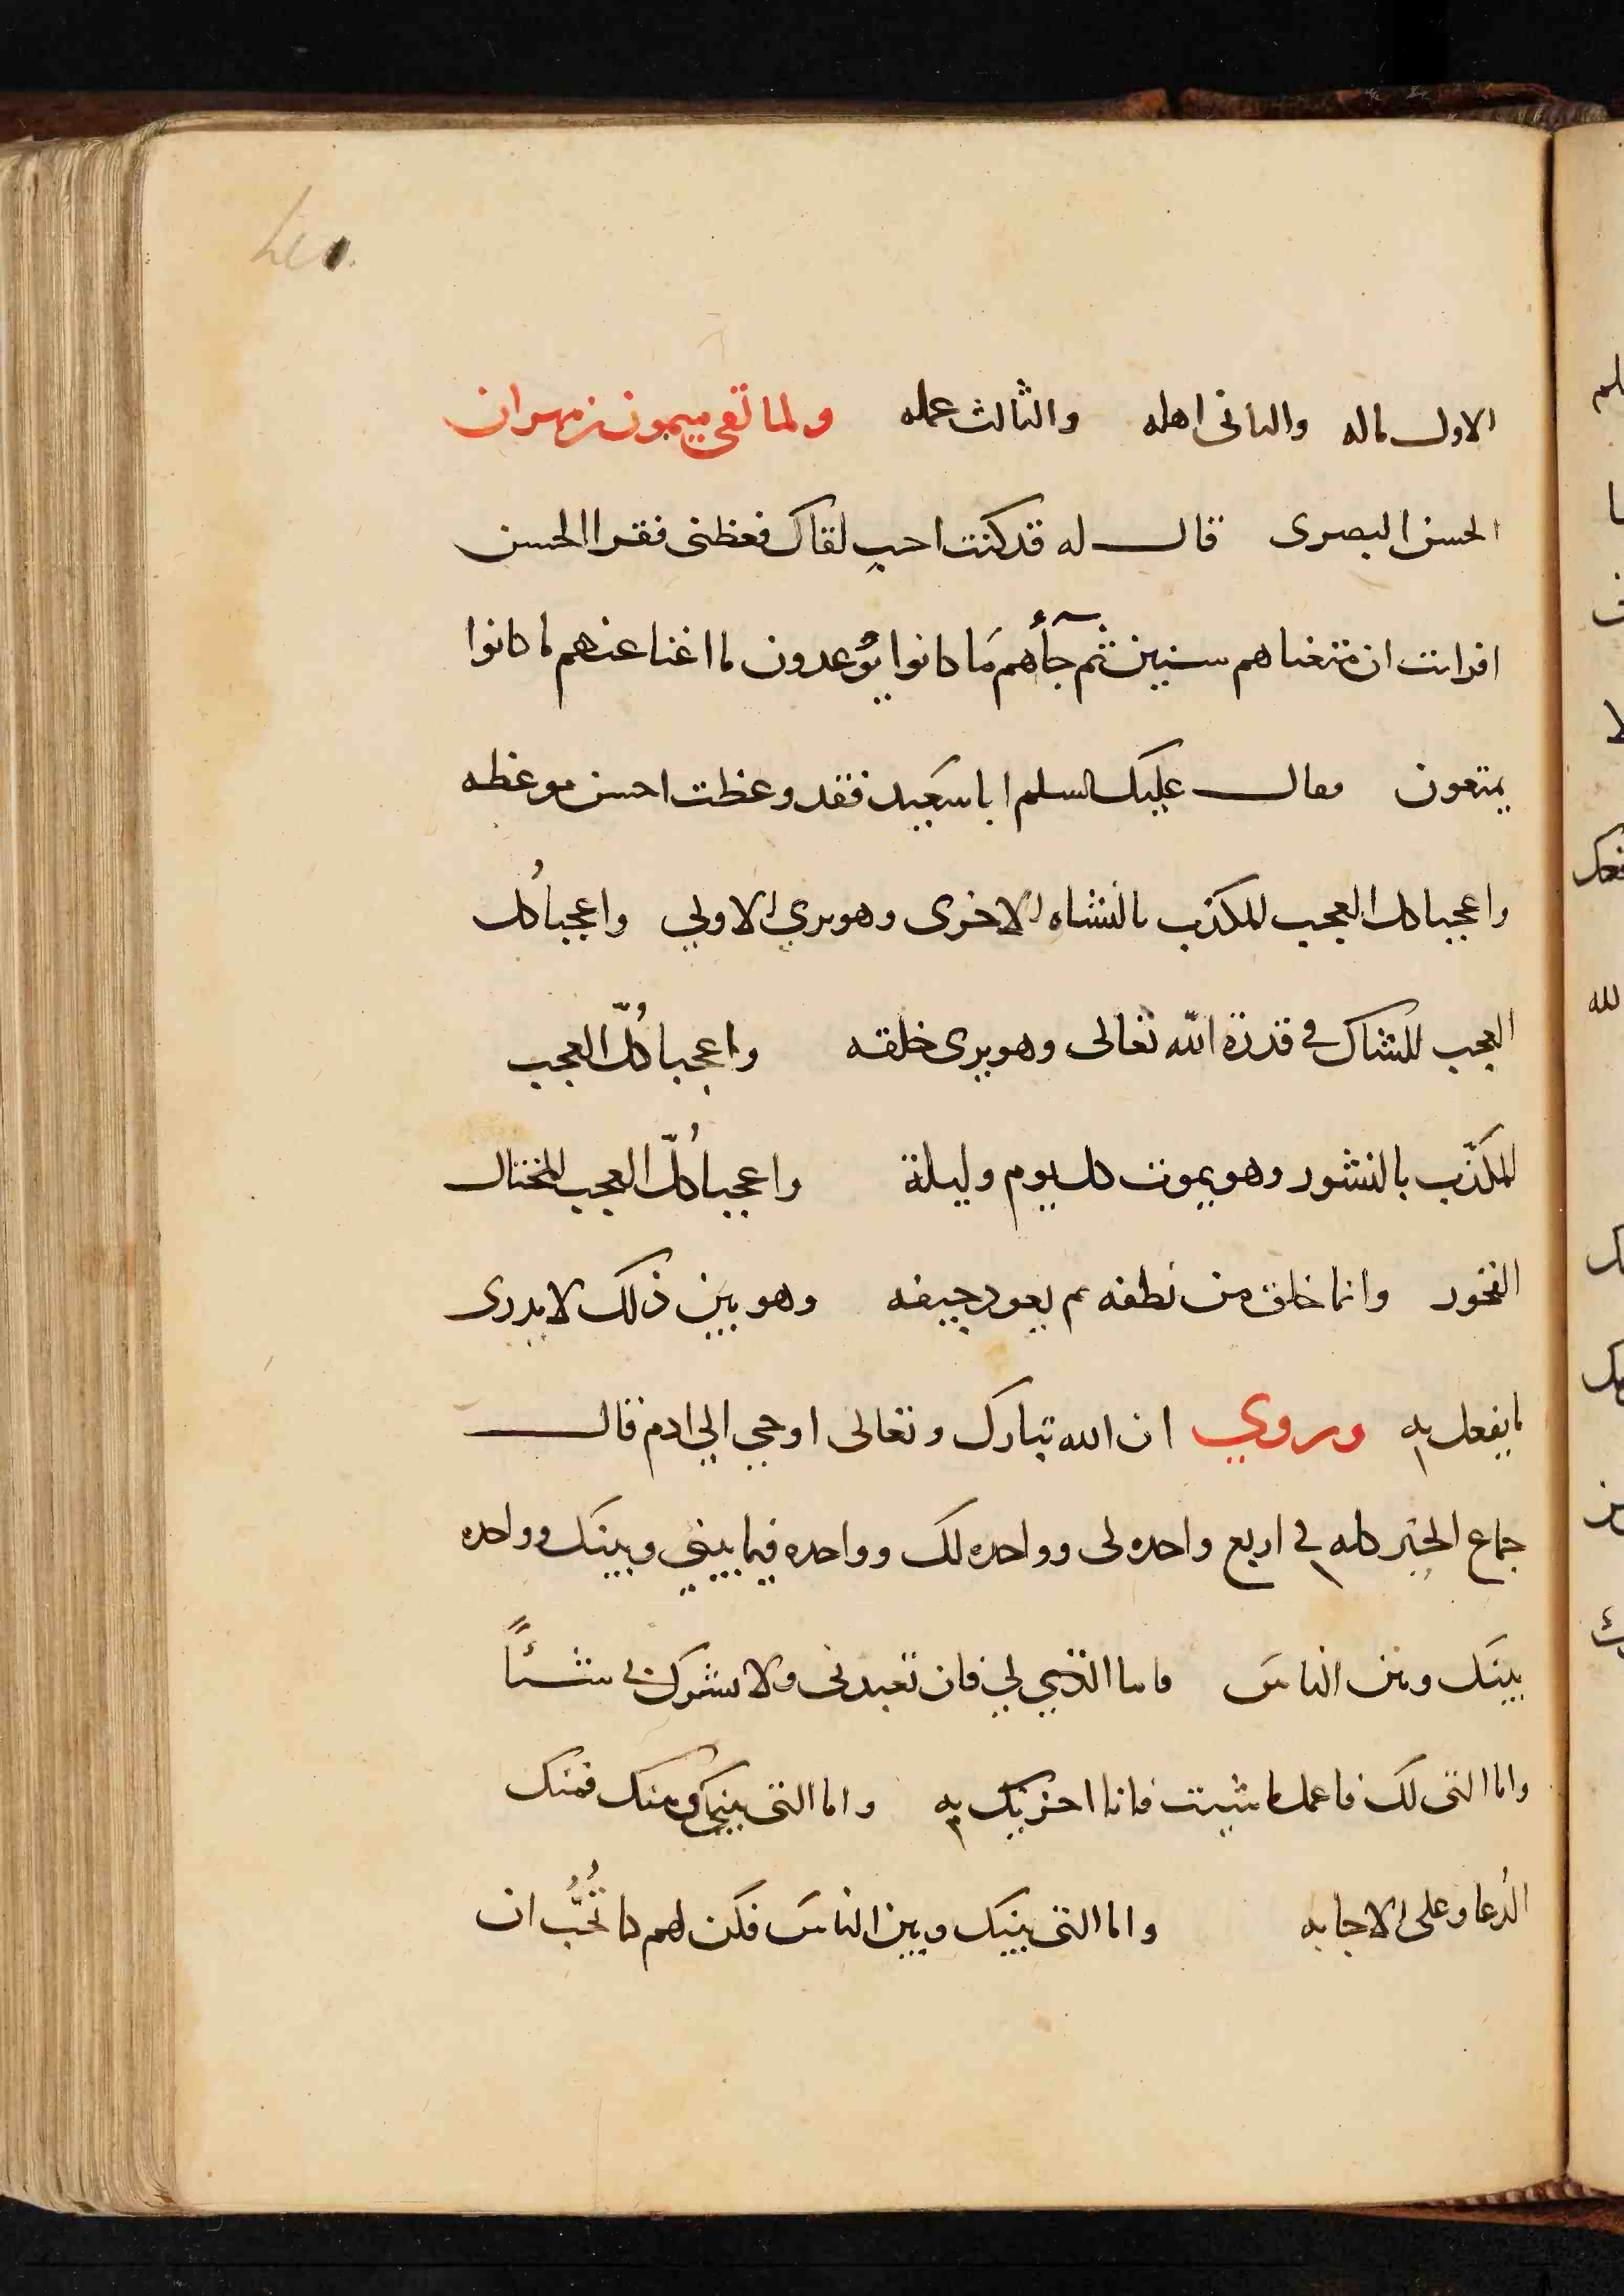 الاول ماله والثانى اهله والثالث عمله ولما لقى ميمون بن مهران
الحسن البصرى قال له قد كنت احب لقاك فعظنى فقرا الحسن
افرايت ان متعناهم سنين ثم جآءهم مَا كانوا يُوعدون ما اغنا عنهم ما كانوا
يمتعون فقال عليك السلم ابا سَعيد فقد وعظت احسن موعظه
واعجبا كل العجب للمكذب بالنشاه الاخرى وهو يري الاولي واعجباُ كل
العجب للشاك في قدرة اللّه تعالى وهو يرى خلقه واعجبا كُلّ العجب
للمكَذّب بالنشور وهو يموت كل يوم وليلة واعجبا كُلّ العجب للمختال
الفخور وانما خلق من نطفه ثم يعود جيفه وهو بين ذلك لا يدرى
ما يفعل به وروي ان الله تبارك وتعالى اوحي الي ادم قال
جماع الخير كله في اربع واحده لى وواحده لك وواحده فيما بيني وبينك وواحده
بينَك وبين الناسَ فاما الذي لي فان تعبدنى ولا تشرك بى شئًا
واما التى لك فاعمل ما شيت فانا اجزيك به واما التى بينى وبينك فمنك
الدُعا وعلى الاجابه واما التى بينك وبين الناسَ فكن لهم كما تُحُبّ ان